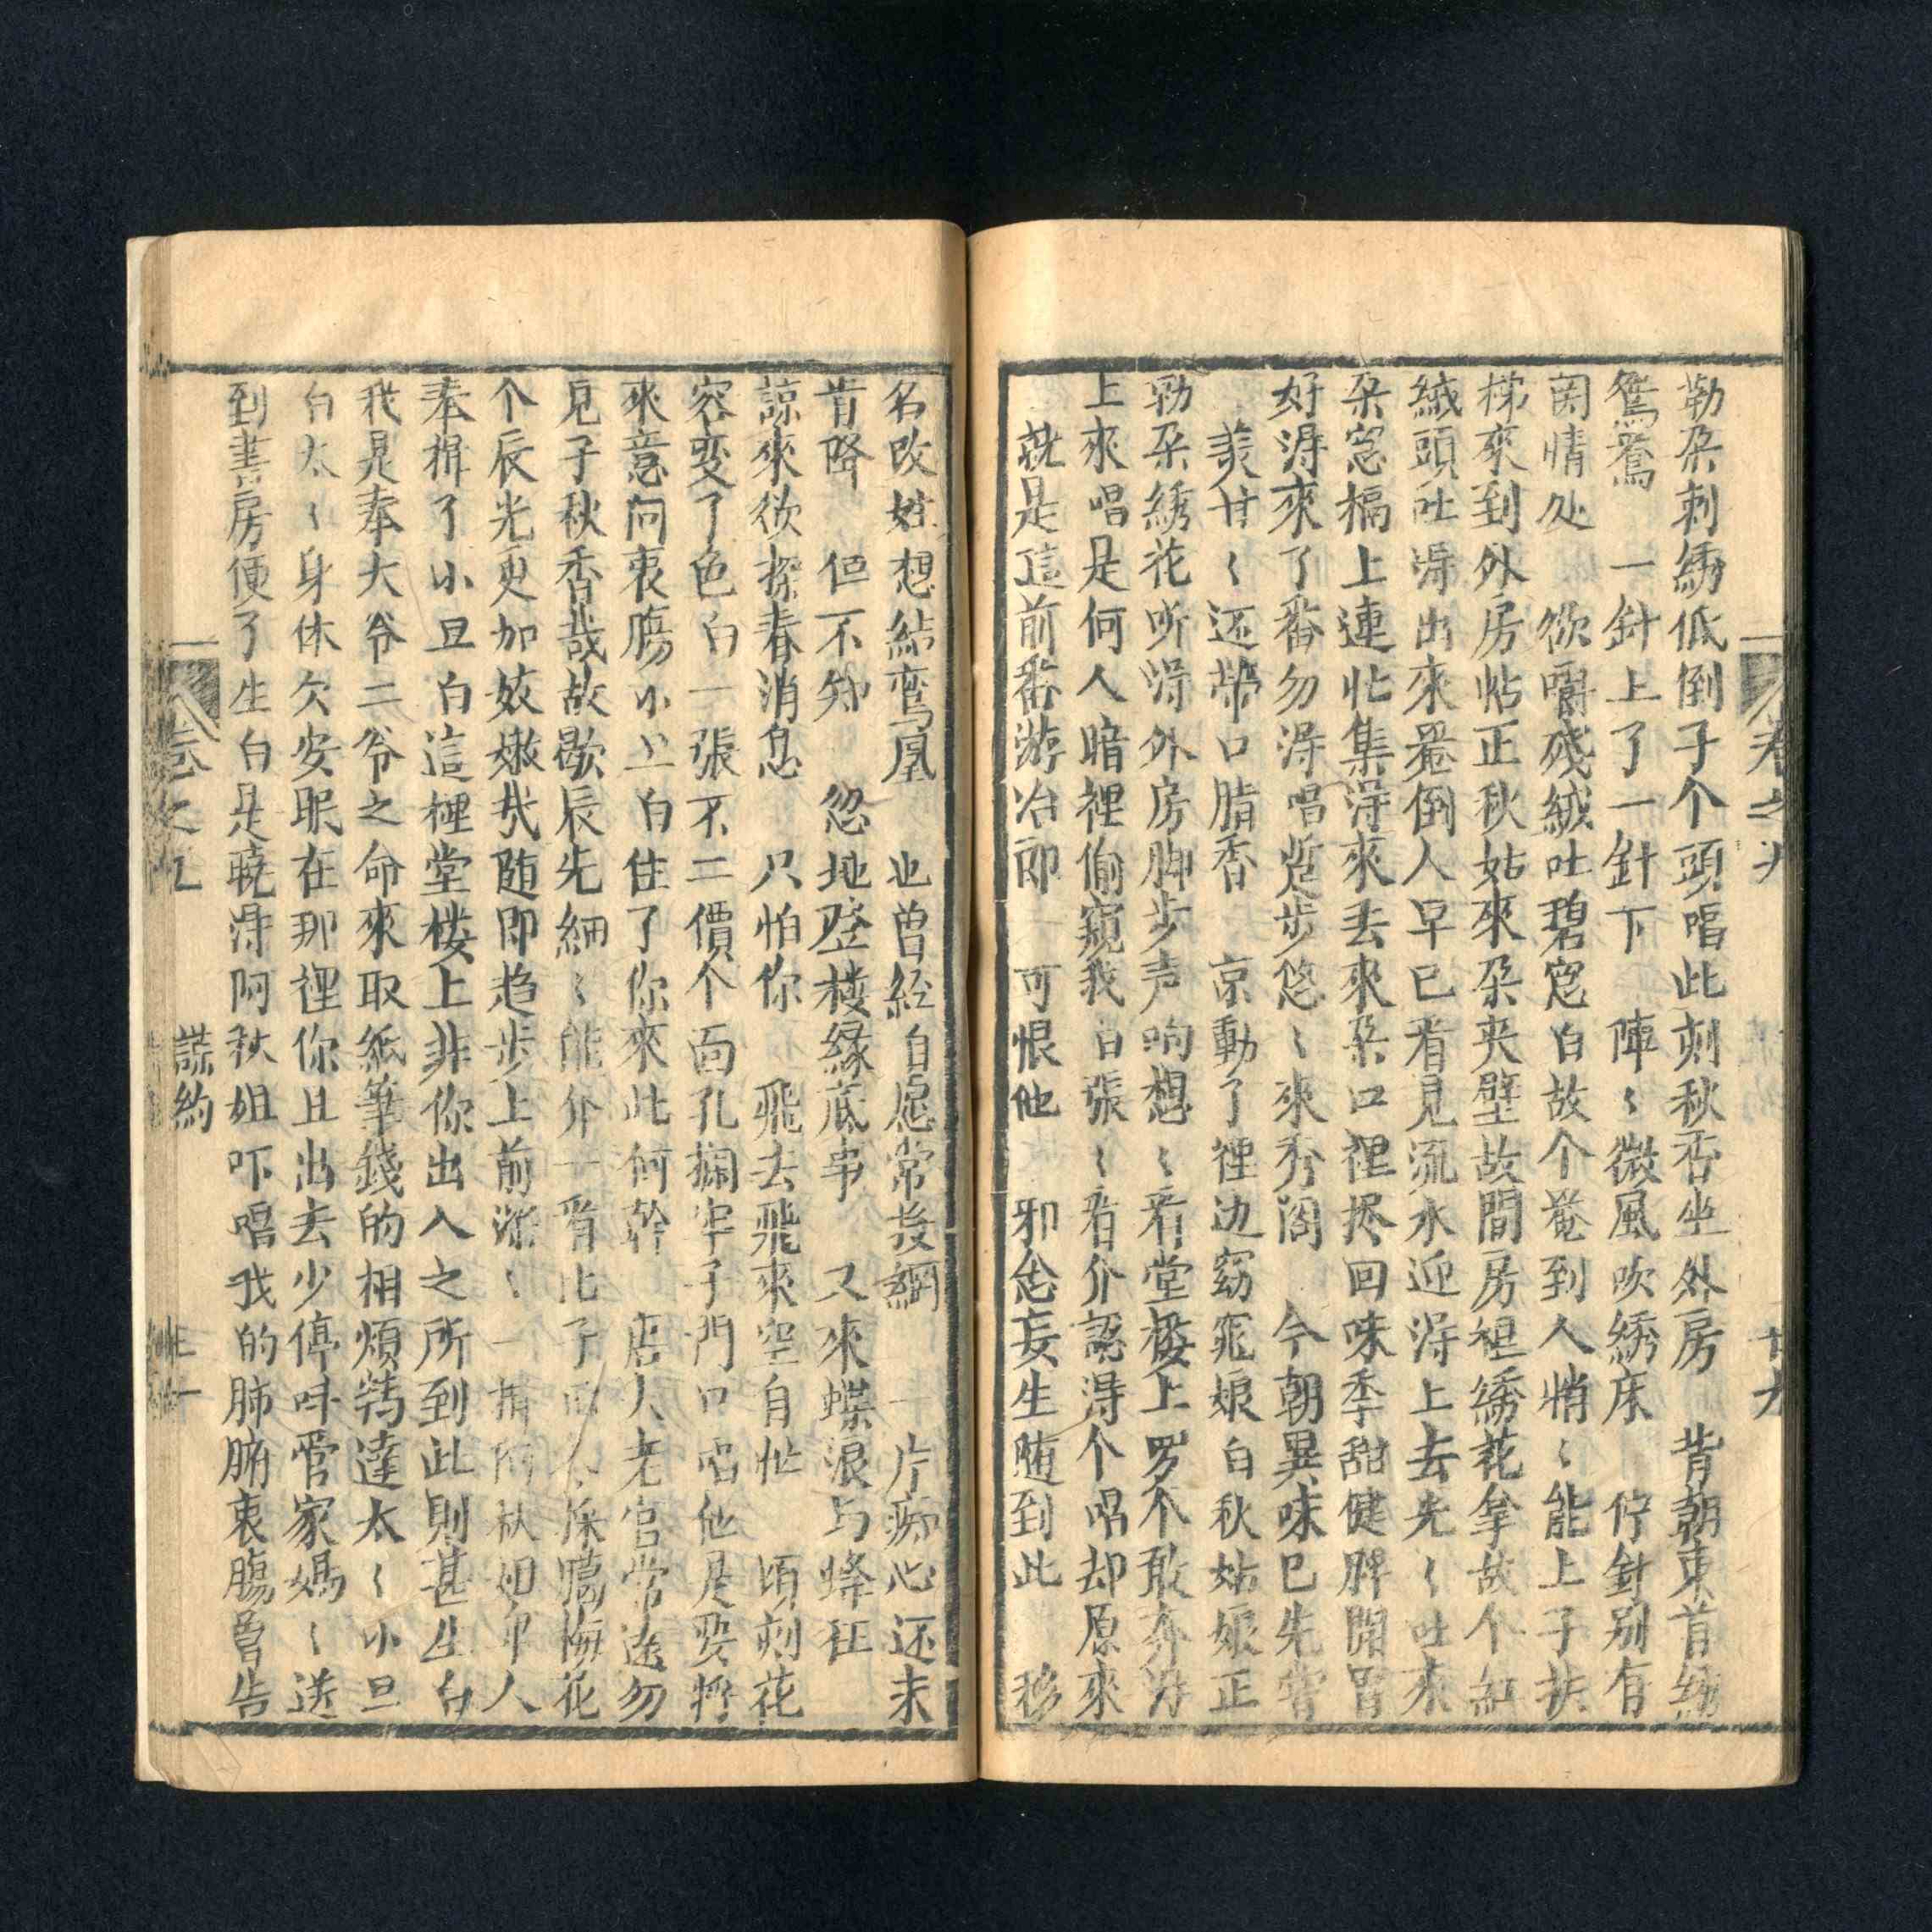 勒朶刺綉低倒子个頭唱此刻秋香坐外房 背朝東首綉
鴛鴦 一針上了一針下 陣〻微風吹綉床 停針别有
関情处 欲嚼殘絨吐碧窓白故个菴到人悄〻能上子扶
梯來到外房帖正秋姑來朶夹壁故間房裡綉花拿故个紅
絨頭吐淂出來菴倒人早已看見流水迎淂上去先〻吐來
朶窓槅上連忙集淂來丢來朶口裡掁回味季甜健脾開胃
好淂來了番勿淂唱疌步悠〻來秀阁 今朝異味已先嘗
美甘〻还帶口脂香 京動了裡边窈窕娘白秋姑娘正
勒朶綉花听淂外房脚步声响想〻看堂楼上罗个敢奔淂
上來唱是何人暗裡偷窺我白張〻看介認淂个唱却原來
就是這前番游冶郎 可恨他 邪念妄生随到此 移
名改姓想結鸾凰 也曾経自愿常投網 一片痴心还未
肯降 但不知 忽地登楼縁底事 又來蝶浪与蜂狂
諒來欲探春消息 只怕你 飛去飛來空自忙 頃刻花
容变了色白一張不二價个面孔攔牢子門口唱他是要將
來意问衷膓小旦白住了你來此何幹 唐大老官常遠勿
見子秋香哉故歇辰先細〻能介一看比子 膓梅花
个辰光更加姣嫩哉随即趋步上前深〻一揖阿秋姐 人
奉揖了小旦白這裡堂楼上非你出入之所到此則甚生白
我是奉大爷二爷之命來取紙筆錢的相煩轉達太〻小旦
白太〻身体欠安眠在那裡你且出去少停呌管家媽〻送
到書房便了生白是曉淂阿秋姐吓唱我的肺腑衷膓曾告
卷之九 謊約
卷之九 廿九